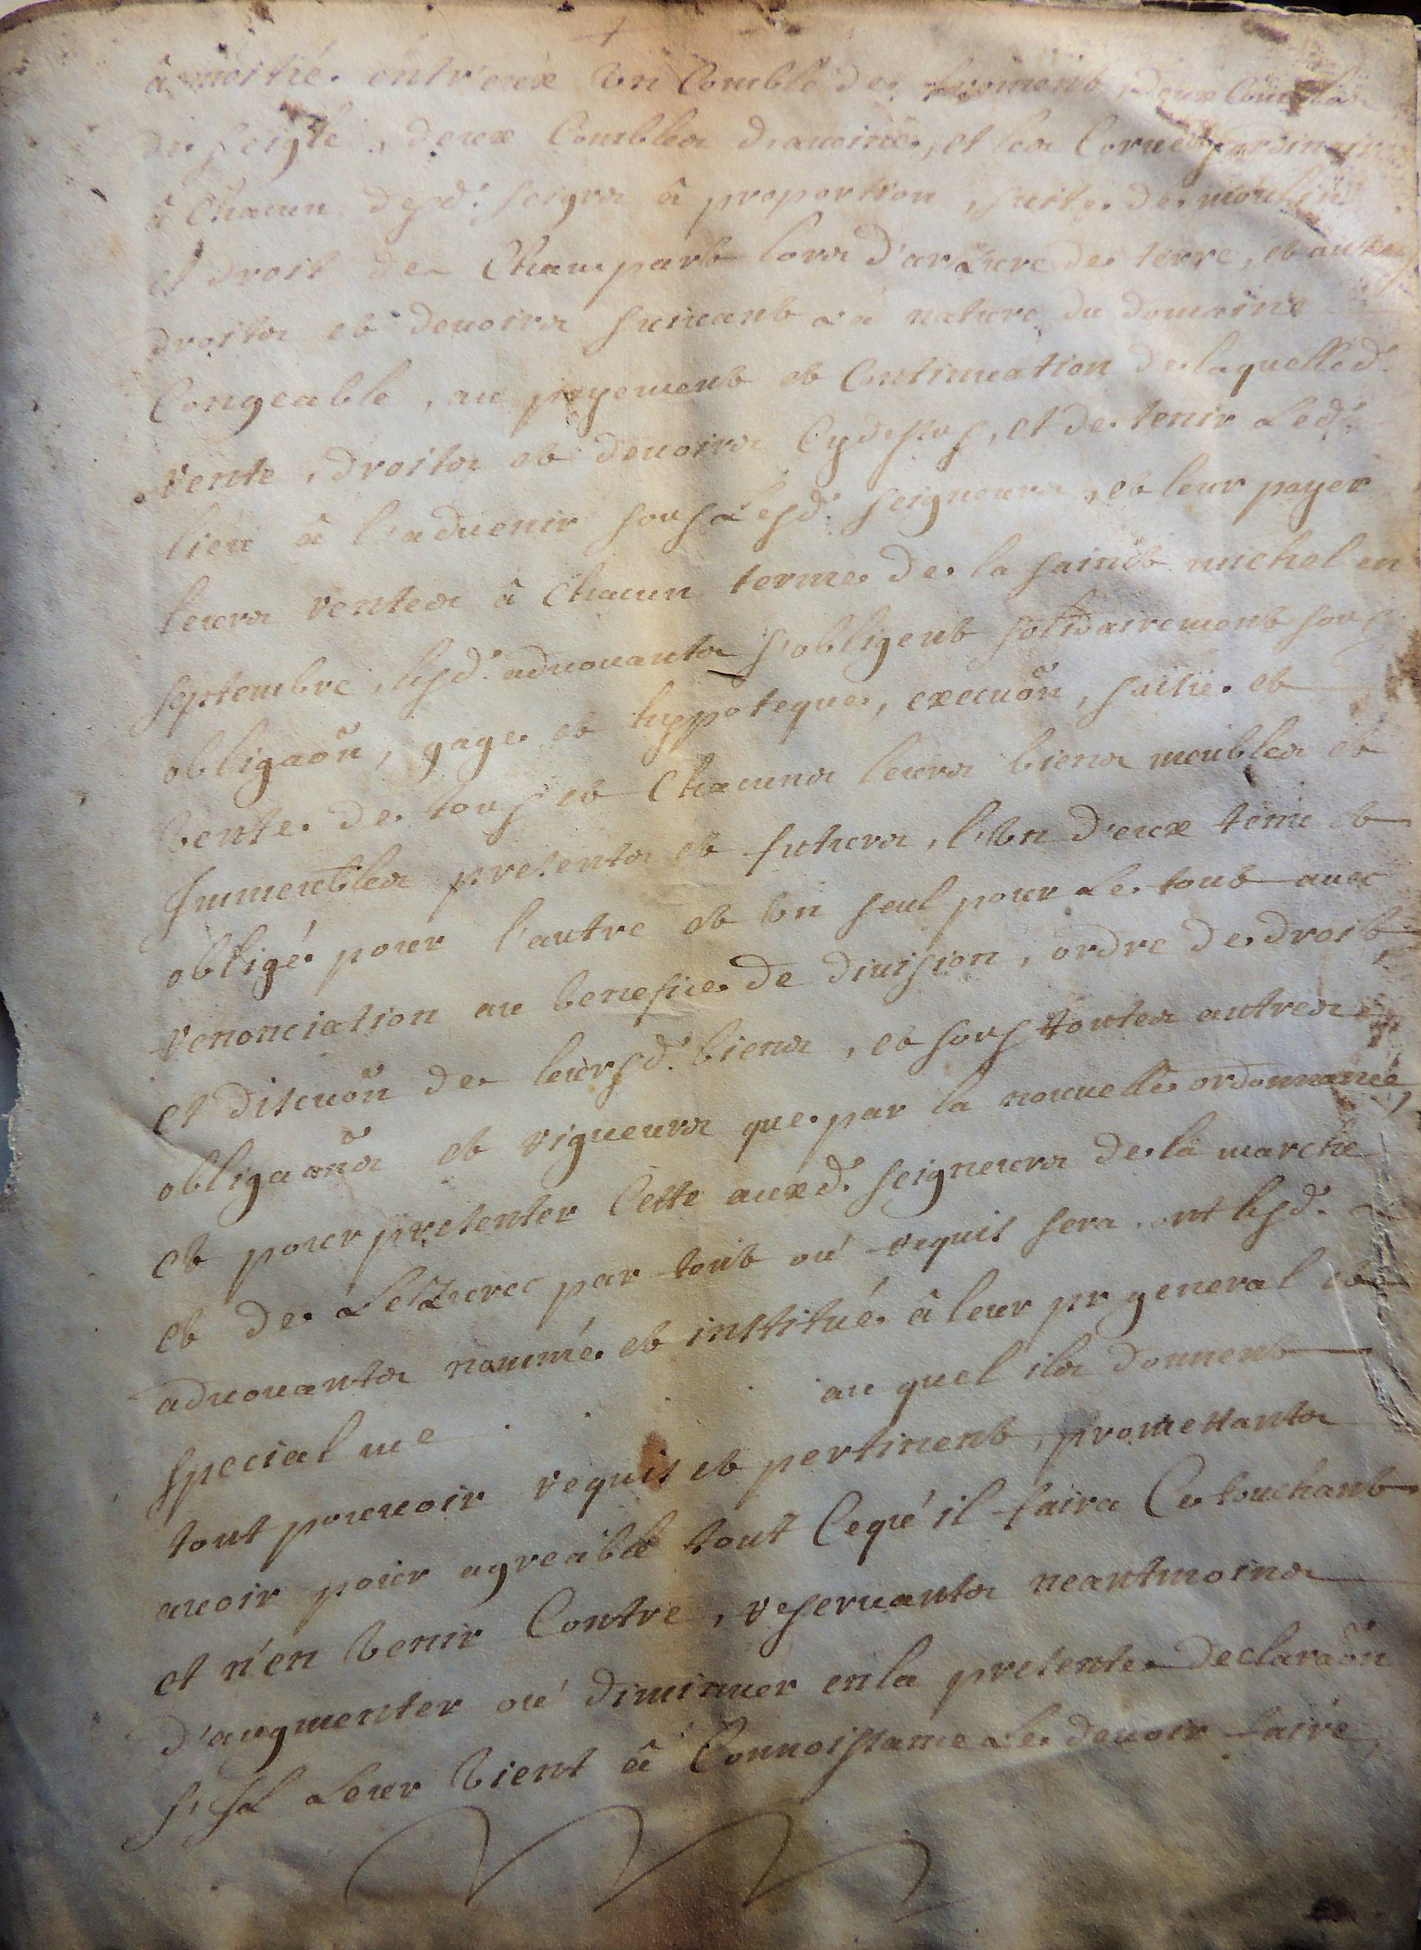 â moitié entr'eux Un Comble de froment, deux Combles
de seigle, deux Combles d'auoine, et les Corueës ordinaires
â Chacun desd. seigrs â proportion, suite de moulin
et droit de Champart lors d'arZure de terre, et autres
droits et deuoirs suiuant La nature du domaine
Congeable, au payement et Continuation de laquelled.
rente, droits et deuoirs Cydessus, et de tenir Led.
lieu â l'aduenir sous Lesd. seigneurs, et leur payer
leurs rentes â Chacun terme de la sainct michel en
septembre, lesd. aduouants s'obligent solidairement sous
obligaoñ, gage et hyppoteque, execuoñ, saisie et
Vente de tous et Chacuns leurs biens meubles et
Immeubles presents et futurs, l'Un d'eux tenu et
obligé pour l'autre et Un seul pour Le tout auec
renonciation au benefice de diuision, ordre de droit,
et discuoñ de leursd. biens, et sous toutes autres
obligaoñs et rigueurs que par la nouuelle ordonnance,
et pour presenter Cette auxd. seigneurs de la marche
et de LesZurec par tout ou requis sera ont lesd.
aduouants nommé et institué â leur pr general et
special me au quel ils donnent
tout pouuoir requis et pertinent, promettants
auoir pour agreable tout Ceque il faira Ce touchant
et n'en Venir Contre, reseruants neantmoins
d'augmenter ou diminuer en la presente declaraoñ
s'il Leur Vient â Connoissance Le deuoir faire,